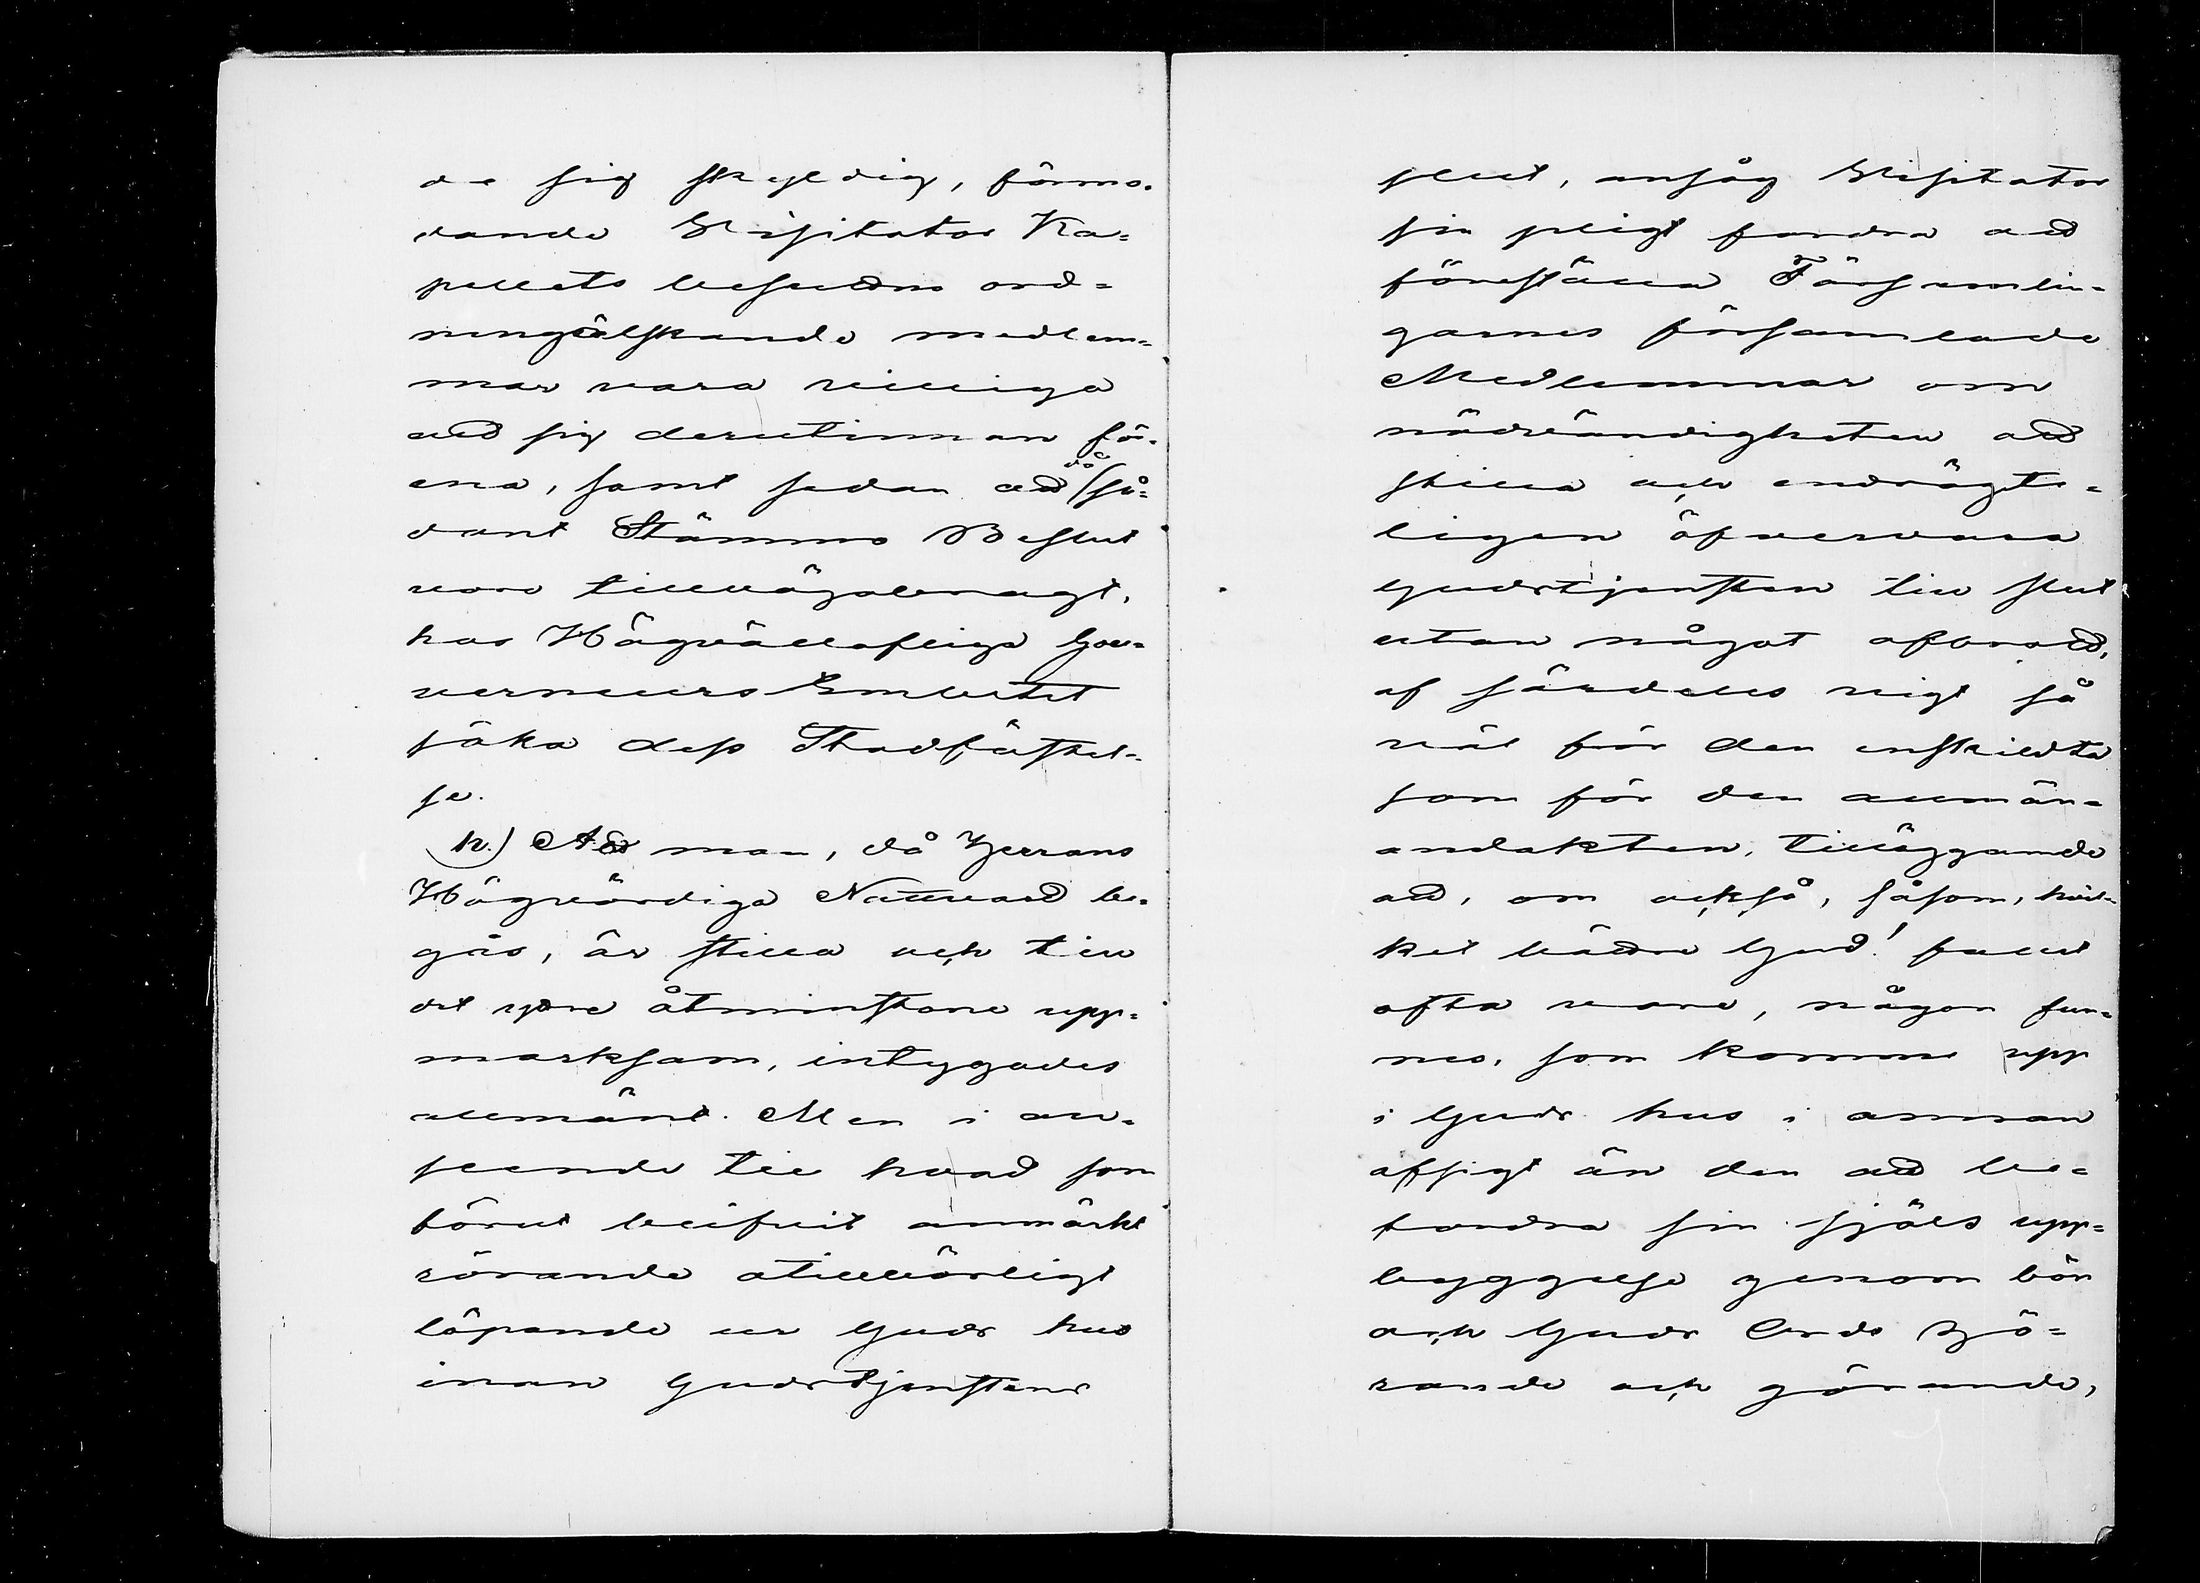 de sig skyldig, förmo-
dande Visitator Ka-
pellets besuttne ord-
ningälskande medlem-
mar vara villiga
att sig derutinnan för-
ena, samt sedan ett då så-
dant Stämmo Beslut
vore tillvägabragt,
hos Högvällofliga Gou-
verneurs Embetet
söka dess Stadfästel-
se.
k.) Att man, då Herrans
Högvördiga Nattvard be-
gås, är stilla och till
det yttre åtminstone upp-
marksam, intygades
allmänt. Men i an-
seende till hvad som
förut blifvit anmärkt
rörande otillbörligt
löpande ur Guds hus
innan Gudstjenstens
slut, ansåg Visitator
sin pligt fordra att
föreställa Församlin-
garnes församlade
Medlemmar om
nödvändigheten att
stilla och endrägte-
ligen öfvervara
Gudstjensten till slut
utan något afbrott,
af särdeles vigt så
väl för den enskildta
som för den allmän-
andakten, tilläggande
att, om också, såsom, hvil-
ket bättre Gud! fallet
ofta vore, någon fun-
nes, som komme upp
i Guds hus i annan
afsigt än den att be-
fordra sin själs upp-
byggelse genom bön
och Guds Ords Hö-
rande och görande,